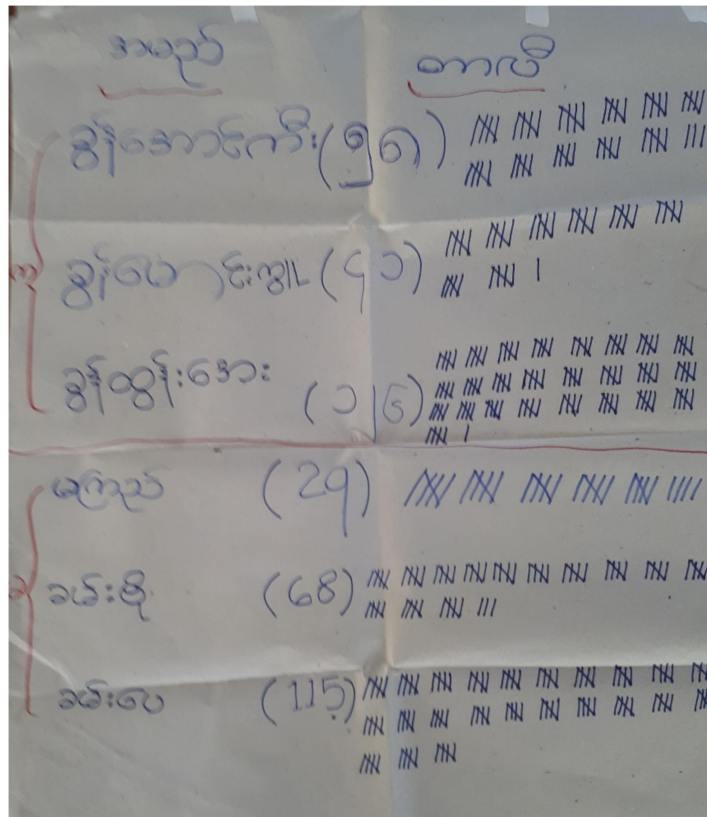 အမည် တာလီ
ခွန်အောင်ကီး (၅၈)
က ခွန်မောင်းကျူ (၄၁)
ခွန်ထွန်းအေး (၁၂၆)
မကြည် (29)
ခ ခမ်းစို (68)
ခမ်းပေ (115)